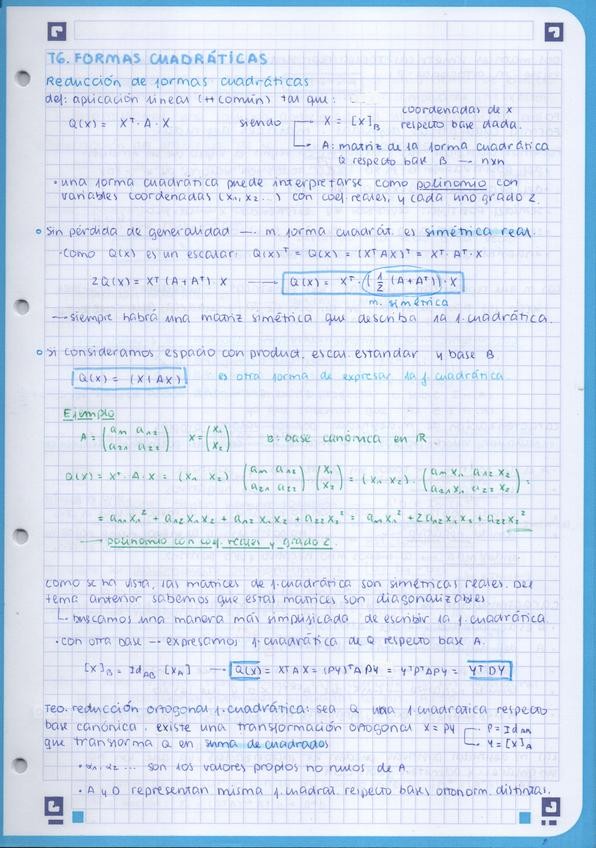 T6. FORMAS CUADRÁTICAS
Reducción de formas cuadráticas
def: aplicación lineal (++ común) tal que:
Q(x) = Xᵀ · A · X siendo X = [x]_B coordenadas de x respecto base dada.
A: matriz de la forma cuadrática
Q respecto base B → n×n
· una forma cuadrática puede interpretarse como polinomio con
variables coordenadas (x₁, x₂ ...) con coef. reales, y cada uno grado 2.
Sin pérdida de generalidad → m. forma cuadrát. es simétrica real.
· como Q(x) es un escalar: Q(x)ᵀ = Q(x) = (XᵀAX)ᵀ = Xᵀ · Aᵀ · X
2Q(x) = Xᵀ (A + Aᵀ) · X → Q(x) = Xᵀ · (1/2 (A + Aᵀ)) · X
m. simétrica
→ siempre habrá una matriz simétrica que describa la f. cuadrática.
Si consideramos espacio con product. escal. estandar y base B
Q(x) = (X | AX) es otra forma de expresar la f. cuadrática
Ejemplo
A = (a₁₁ a₁₂ / a₂₁ a₂₂) X = (x₁ / x₂) B: base canónica en R
Q(x) = Xᵀ · A · X = (x₁ x₂) (a₁₁ a₁₂ / a₂₁ a₂₂) · (x₁ / x₂) = (x₁ x₂) · (a₁₁x₁ a₁₂x₂ / a₂₁x₁ a₂₂x₂) =
= a₁₁x₁² + a₁₂x₁x₂ + a₁₂x₁x₂ + a₂₂x₂² = a₁₁x₁² + 2a₁₂x₁x₂ + a₂₂x₂²
→ polinomio con coef. reales y grado 2.
como se ha vista, las matrices de f. cuadrática son simétricas reales. Del
tema anterior sabemos que estas matrices son diagonalizables
buscamos una manera más simplificada de escribir la f. cuadrática.
· con otra base → expresamos f. cuadrática de Q respecto base A.
[x]_B = Id_AB · [x_A] → Q(x) = XᵀAX = (PY)ᵀAPY = YᵀPᵀAPY = YᵀDY
Teo. reducción ortogonal f. cuadrática: sea Q una f. cuadrática respecto
base canónica. existe una transformación ortogonal X = PY P = Id
que transforma Q en suma de cuadrados Y = [x]_A
· α₁, α₂ ... son los valores propios no nulos de A.
· A y D representan misma f. cuadrat. respecto bases ortonorm. distintas.